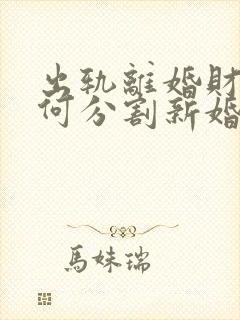 出轨離婚財
何分割新婚
馬妹瑞